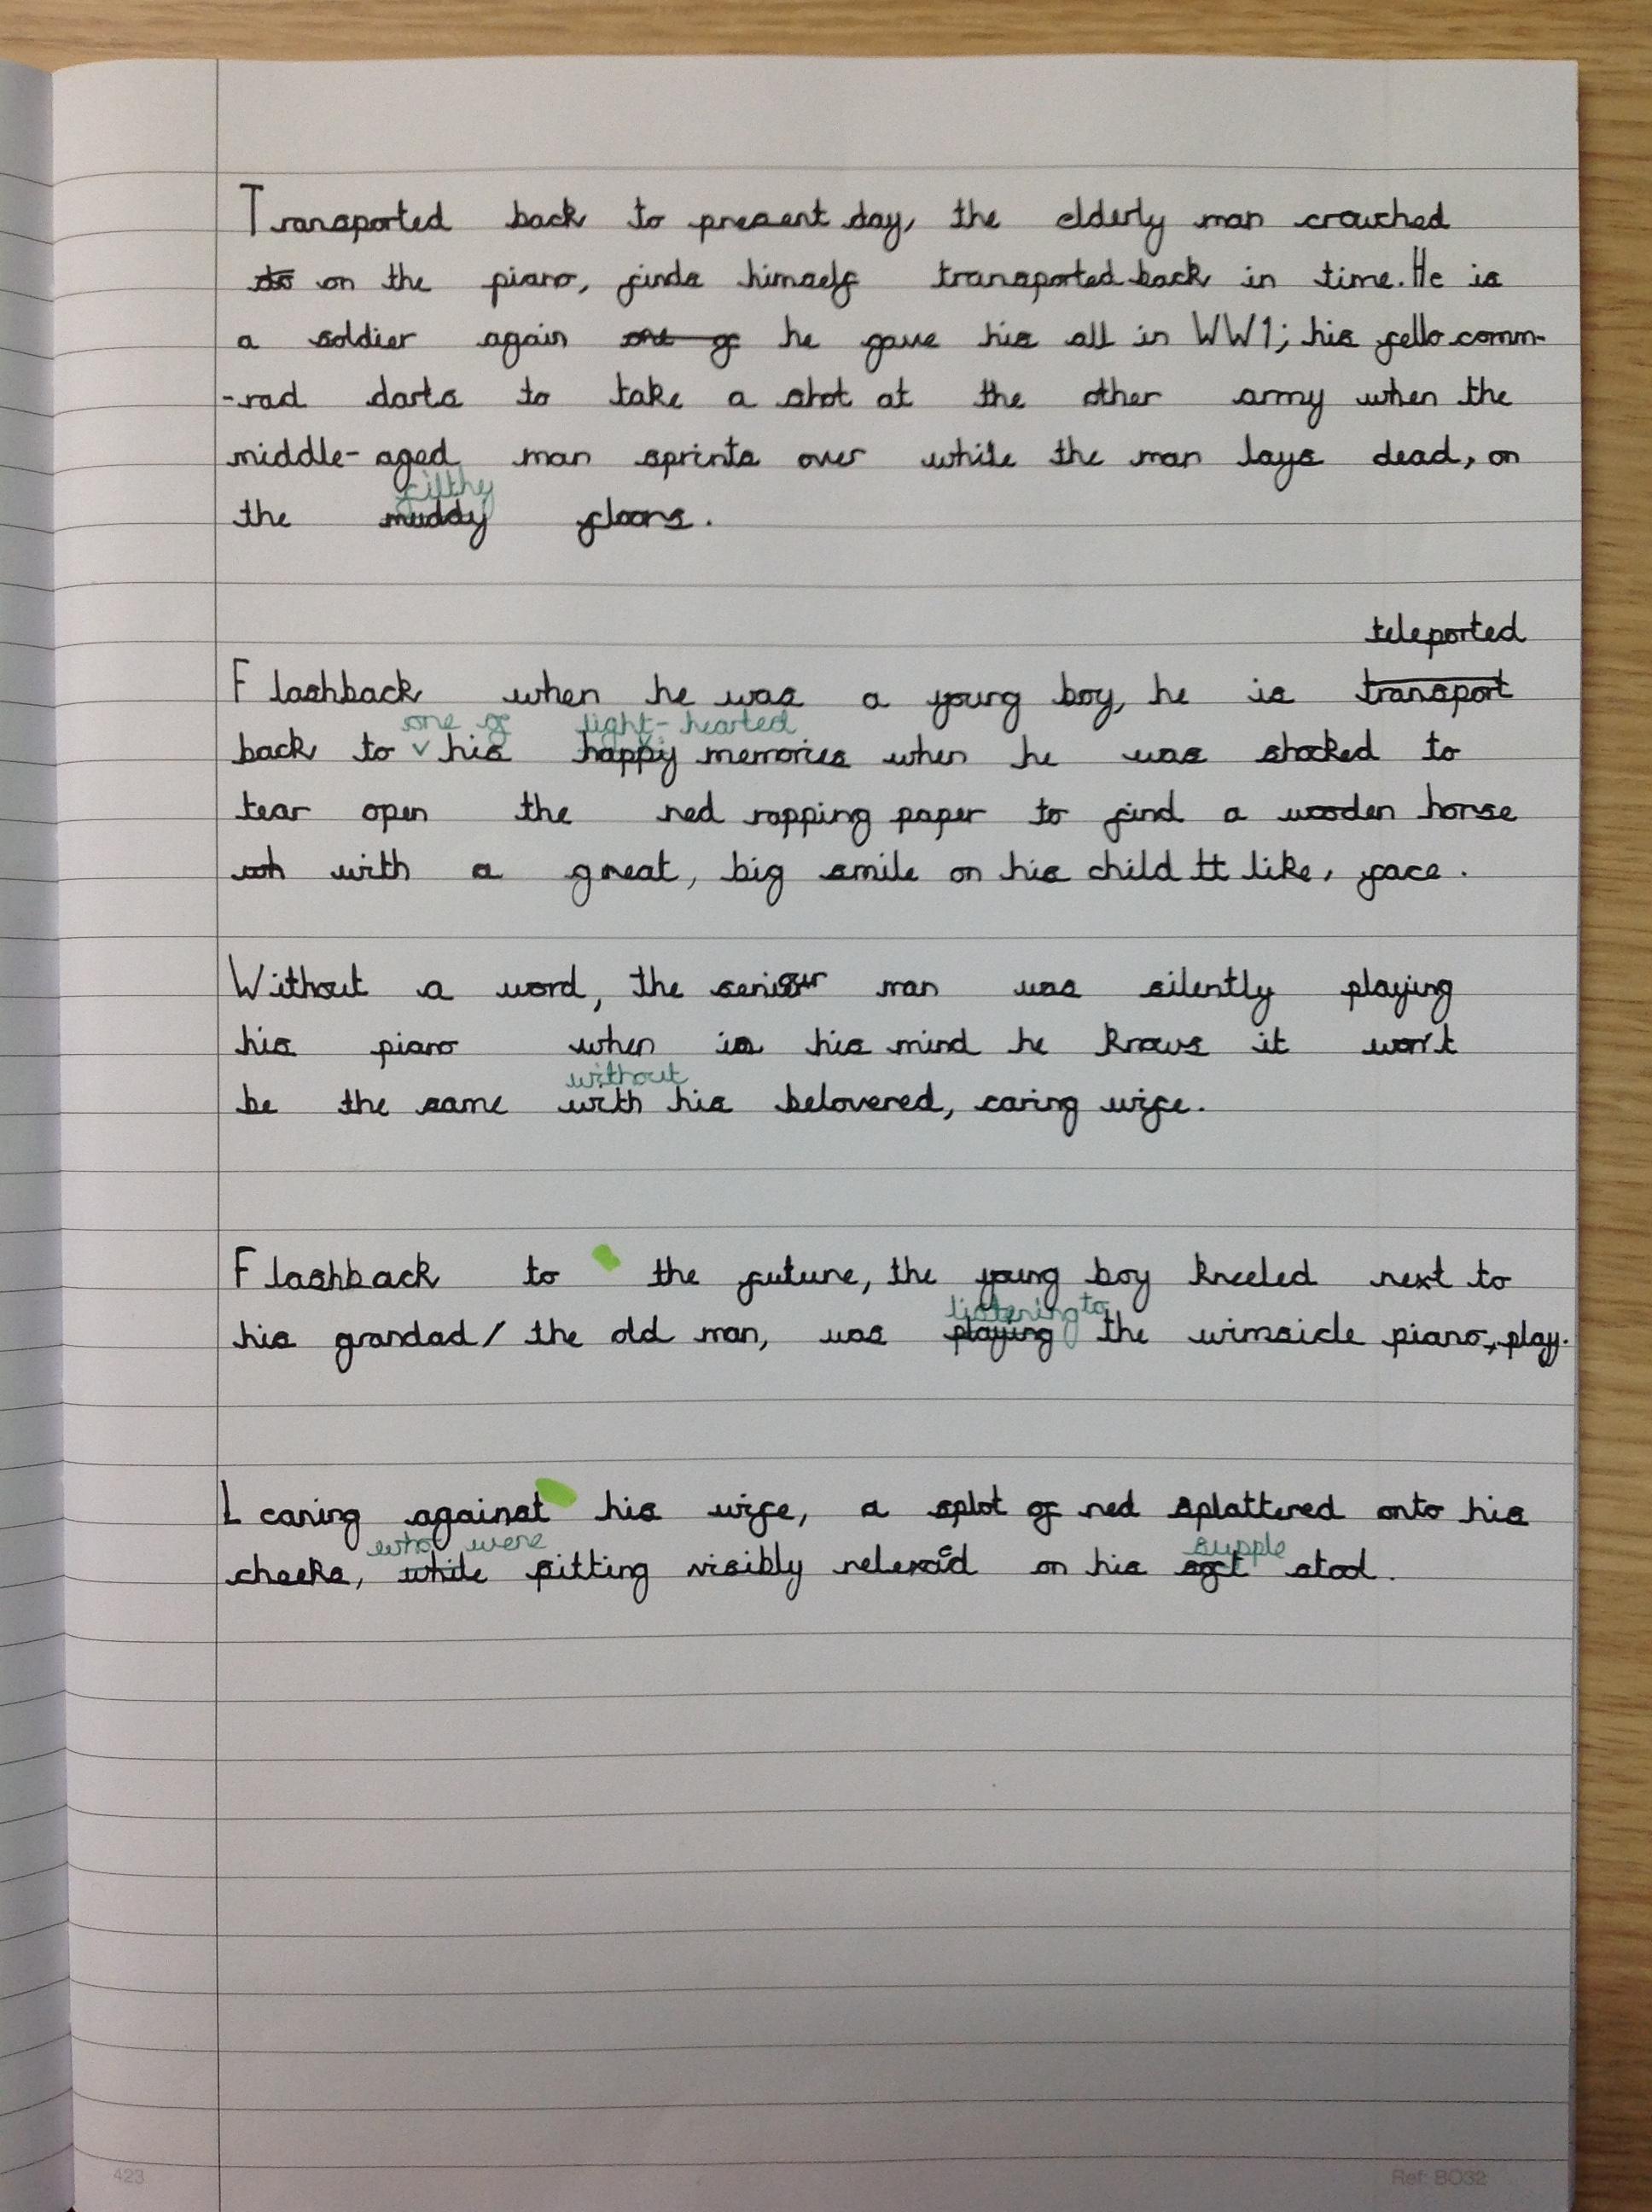 Transported back to present day, the elderly man crouched
to on the piano, finds himself transported back in time. He is
a soldier again one of he gave his all in WW1; his fello comm-
-rad darts to take a shot at the other army when the
middle-aged man sprints over while the man lays dead, on
filthy
the muddy floors.
teleported
Flashback when he was a young boy, he is transport
one of light-hearted
back to v his happy memories when he was shocked to
tear open the red rapping paper to find a wooden horse
with a great, big smile on his child like, face.
Without a word, the seniour man was silently playing
his piano when in his mind he knows it won't
without
be the same with his belovered, caring wife.
Flashback to the future, the young boy kneeled next to
listening to
his grandad/ the old man, was playing the wimsicle piano, play.
Leaning against his wife, a splot of red splattered onto his
who were supple
cheeks, while sitting visibly relexed on his soft stool.
423 Ref: BO32